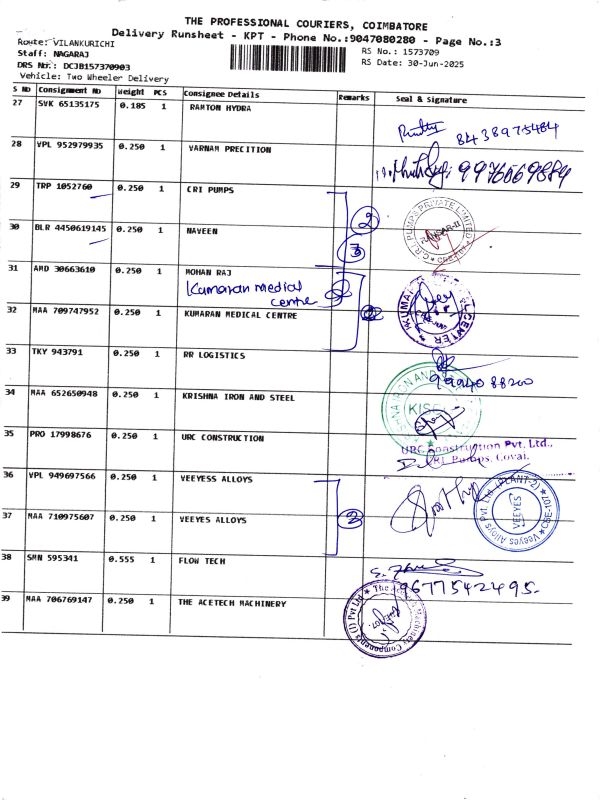 THE PROFESSIONAL COURIERS, COIMBATORE
Delivery Runsheet - KPT - Phone No.:9047080280 - Page No.:3
Route: VILANKURICHI
Staff: NAGARAJ
DRS No.: DCJB157370903
Vehicle: Two Wheeler Delivery
RS No.: 1573709
RS Date: 30-Jun-2025
S No Consignment No Weight PCS Consignee Details Remarks Seal & Signature
27 SVK 65135175 0.185 1 RAMTON HYDRA
8438975484
28 VPL 952979935 0.250 1 VARNAM PRECITION
9976669884
29 TRP 1052760 0.250 1 CRI PUMPS
2
30 BLR 4450619145 0.250 1 NAVEEN
3
31 AMD 30663610 0.250 1 MOHAN RAJ
Kumaran medical
centre
32 MAA 709747952 0.250 1 KUMARAN MEDICAL CENTRE
33 TKY 943791 0.250 1 RR LOGISTICS
99940 88200
34 MAA 652650948 0.250 1 KRISHNA IRON AND STEEL
35 PRO 17998676 0.250 1 URC CONSTRUCTION
URC Construction Pvt. Ltd.,
CRI Pumps, Covai.
36 VPL 949697566 0.250 1 VEEYESS ALLOYS
Veeyes Alloys Pvt. Ltd (PLANT-2)
VEEYES
37 MAA 710975607 0.250 1 VEEYES ALLOYS
2
38 SMN 595341 0.555 1 FLOW TECH
9677542495.
39 MAA 706769147 0.250 1 THE ACETECH MACHINERY
The Acetech Machinery Components (I) Pvt Ltd